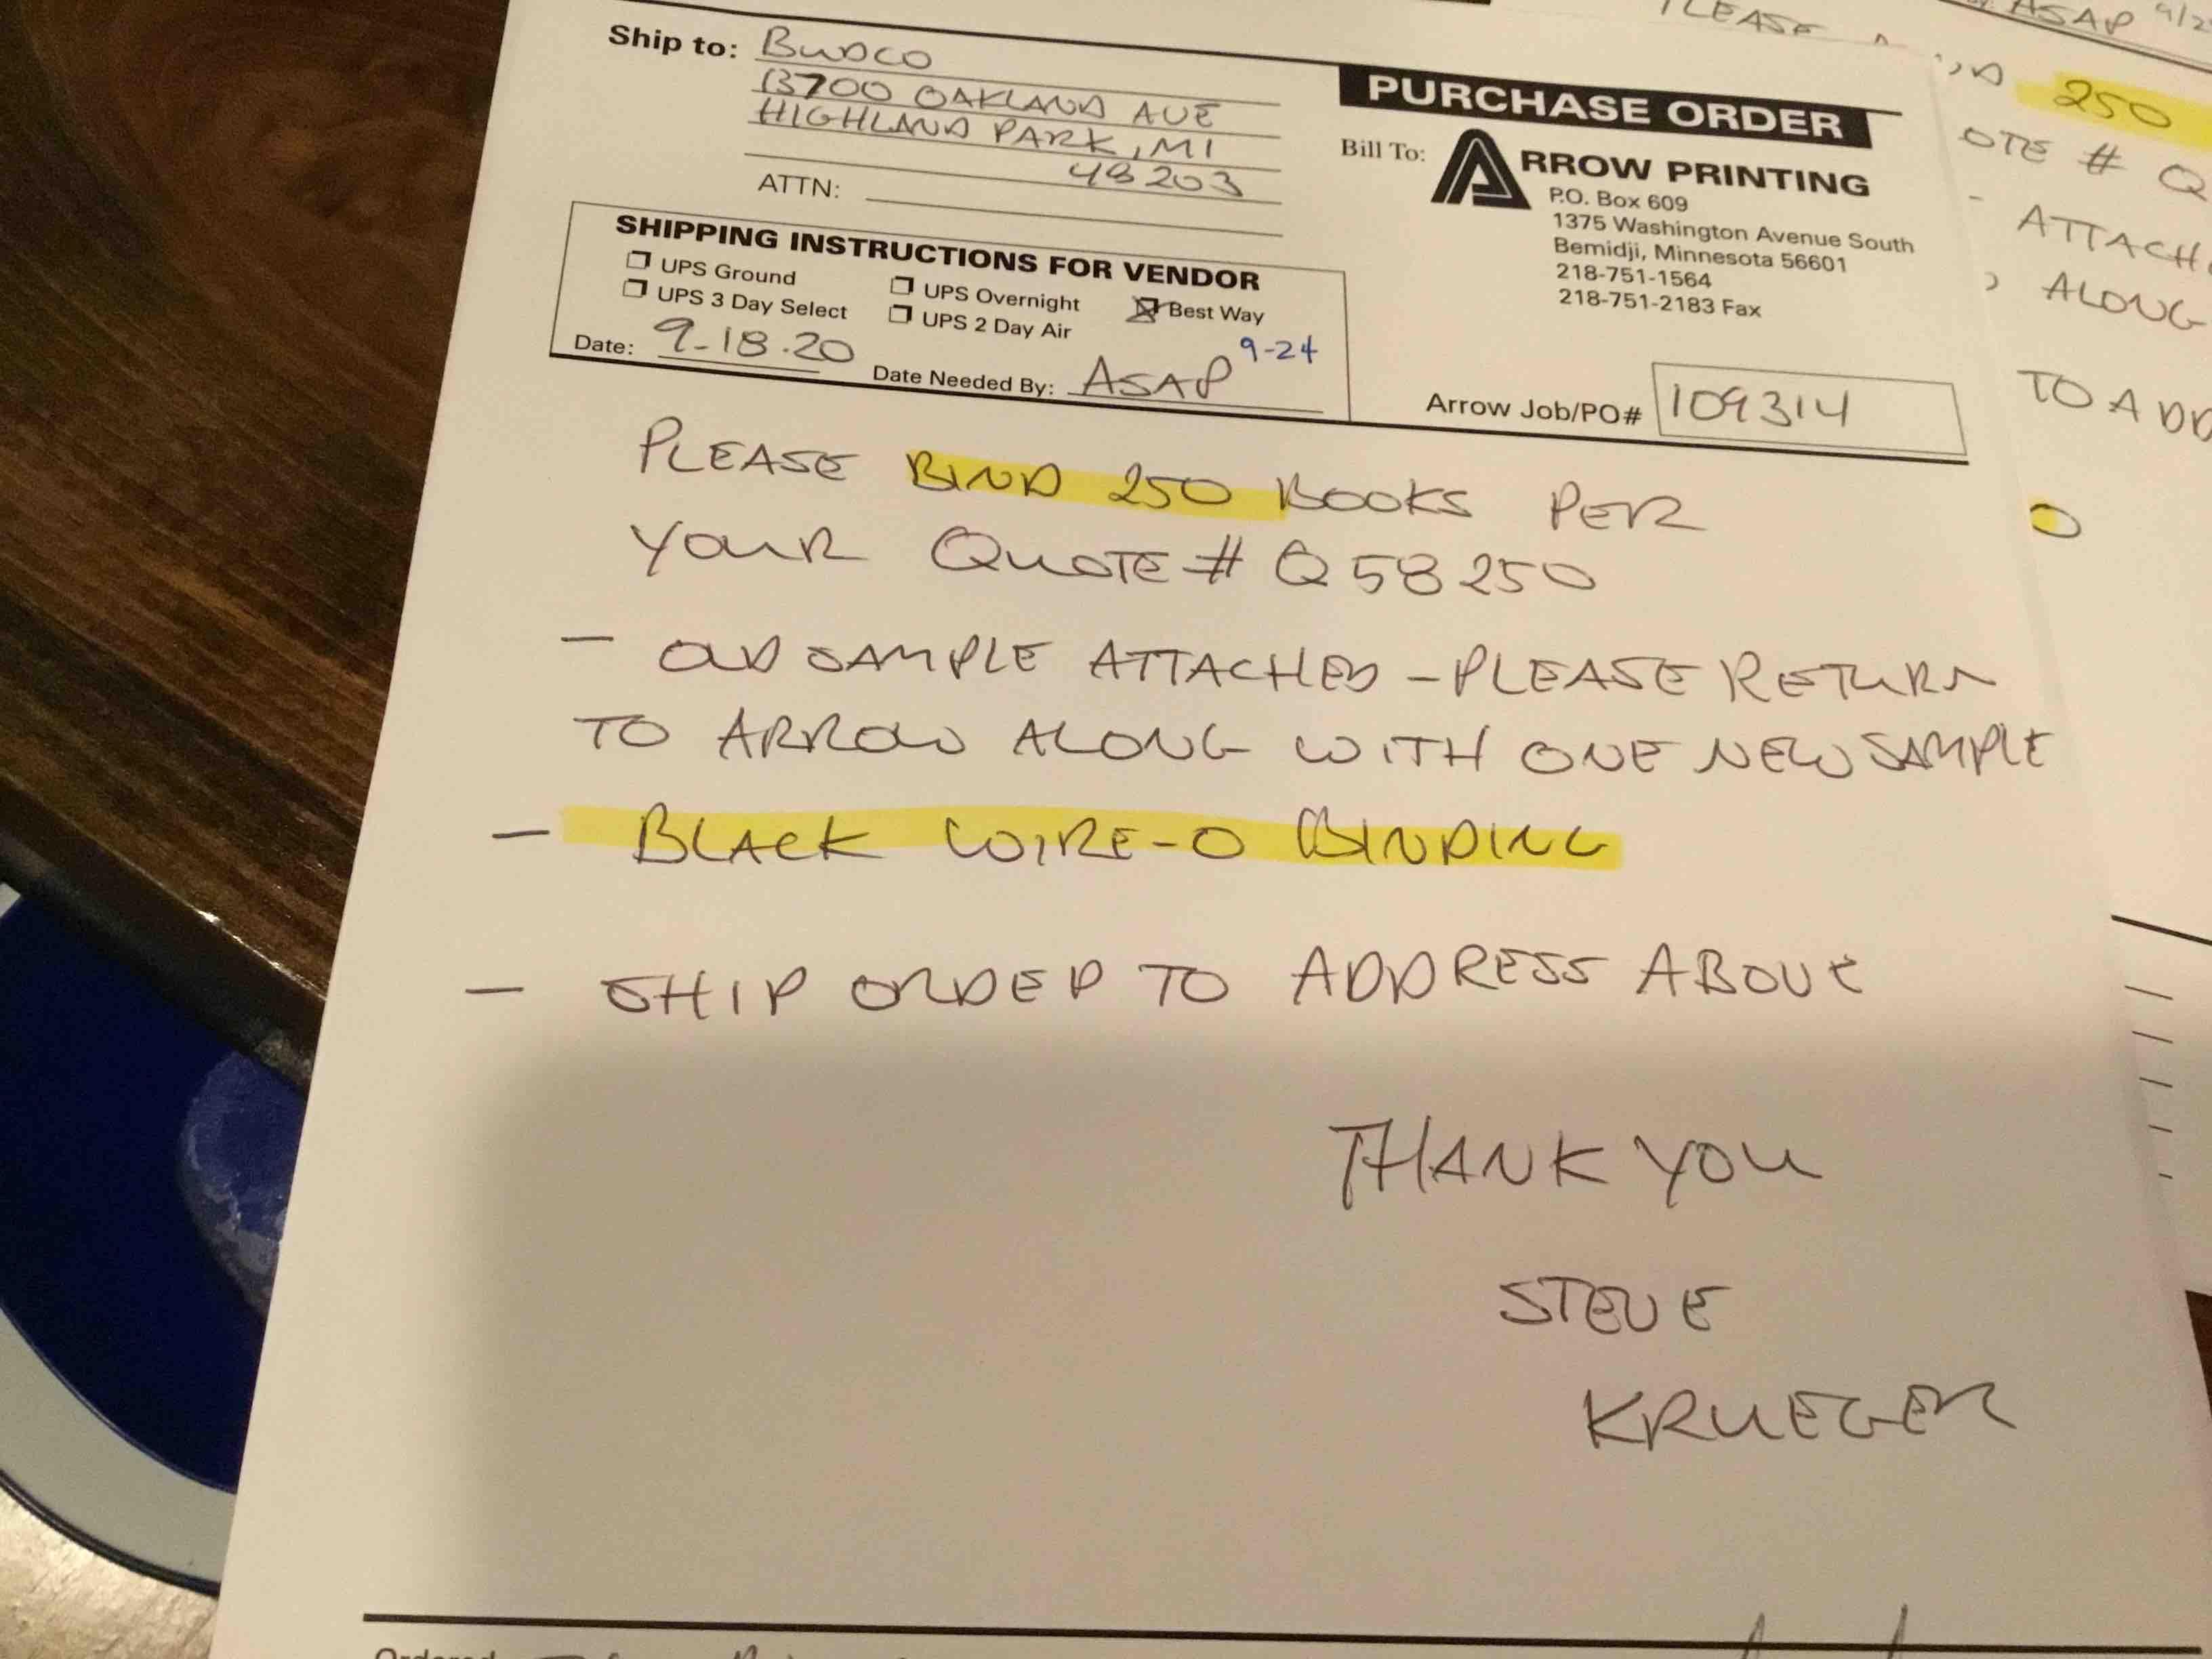 Ship to: BUDCO
13700 OAKLAND AVE
HIGHLAND PARK, MI
48203
ATTN:
SHIPPING INSTRUCTIONS FOR VENDOR
UPS Ground UPS Overnight Best Way
UPS 3 Day Select UPS 2 Day Air
Date: 9-18-20 Date Needed By: ASAP 9-24
PURCHASE ORDER
Bill To: ARROW PRINTING
P.O. Box 609
1375 Washington Avenue South
Bemidji, Minnesota 56601
218-751-1564
218-751-2183 Fax
Arrow Job/PO# 109314
PLEASE BIND 250 BOOKS PER
YOUR QUOTE # Q58250
- OLD SAMPLE ATTACHED - PLEASE RETURN
TO ARROW ALONG WITH ONE NEW SAMPLE
- BLACK WIRE-O BINDING
- SHIP ORDER TO ADDRESS ABOVE
THANK YOU
STEVE
KRUEGER
PLEASE
ASAP
250
OTE # Q
- ATTACH
ALONG
TO ADD